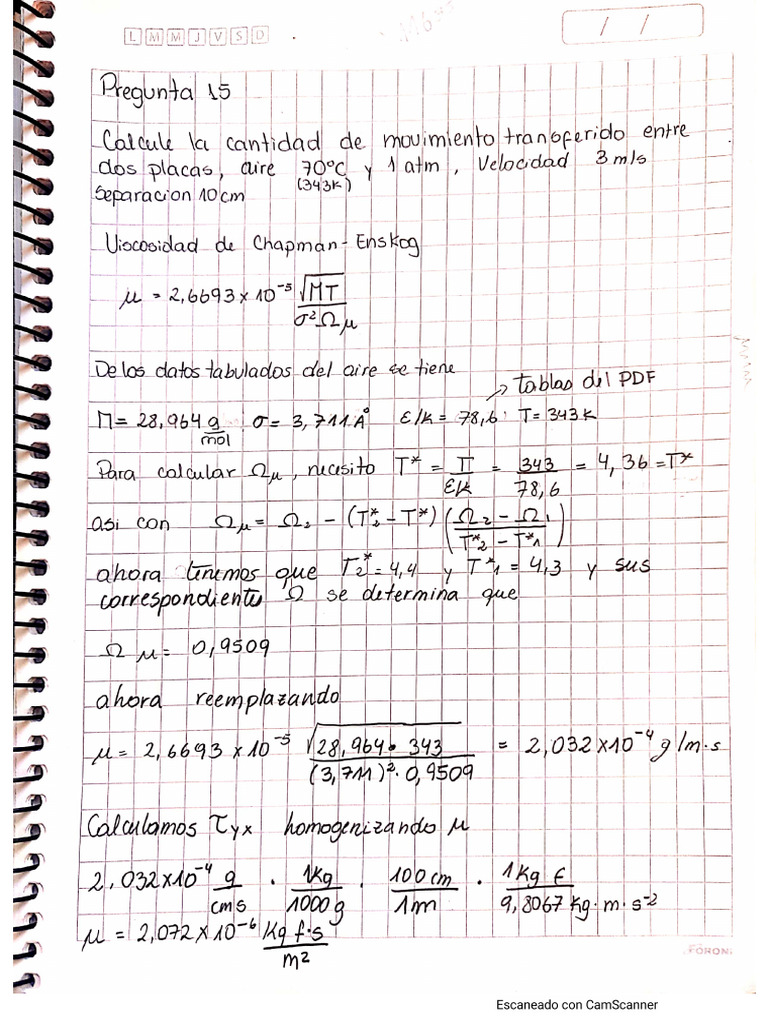 L M M J V S D
/ /
Pregunta 15
Calcule la cantidad de movimiento transferido entre
dos placas, aire 70°C y 1 atm, Velocidad 3 m/s
(343K)
Separacion 10 cm
Viscosidad de Chapman-Enskog
μ = 2,6693 × 10⁻⁵ √MT / σ²Ωμ
De los datos tabulados del aire se tiene
→ tablas del PDF
M = 28,964 g/mol σ = 3,711 Å ε/k = 78,6 T = 343 K
Para calcular Ωμ, necesito T* = T/(ε/k) = 343/78,6 = 4,36 = T*
asi con Ωμ = Ω₂ - (T*₂ - T*) (Ω₂ - Ω₁ / T*₂ - T*₁)
ahora tenemos que T₂* = 4,4 y T*₁ = 4,3 y sus
correspondiente Ω se determina que
Ωμ = 0,9509
ahora reemplazando
μ = 2,6693 × 10⁻⁵ √28,964 • 343 / (3,711)² · 0,9509 = 2,032 × 10⁻⁴ g/m·s
Calculamos τyx homogenizando μ
2,032×10⁻⁴ g/cms · 1Kg/1000g · 100cm/1m · 1Kg f/9,8067 Kg·m·s⁻²
μ = 2,072 × 10⁻⁶ Kg f·s/m²
Escaneado con CamScanner